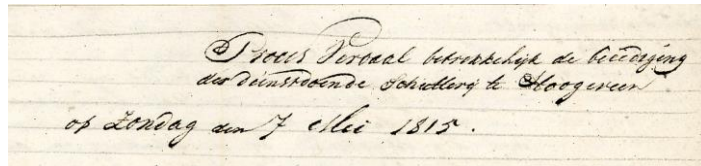 Proces Verbaal betrekkelijk de beëediging
der dienstdoende Schutterij te Hoogeveen
op Zondag den 7 Mei 1815.